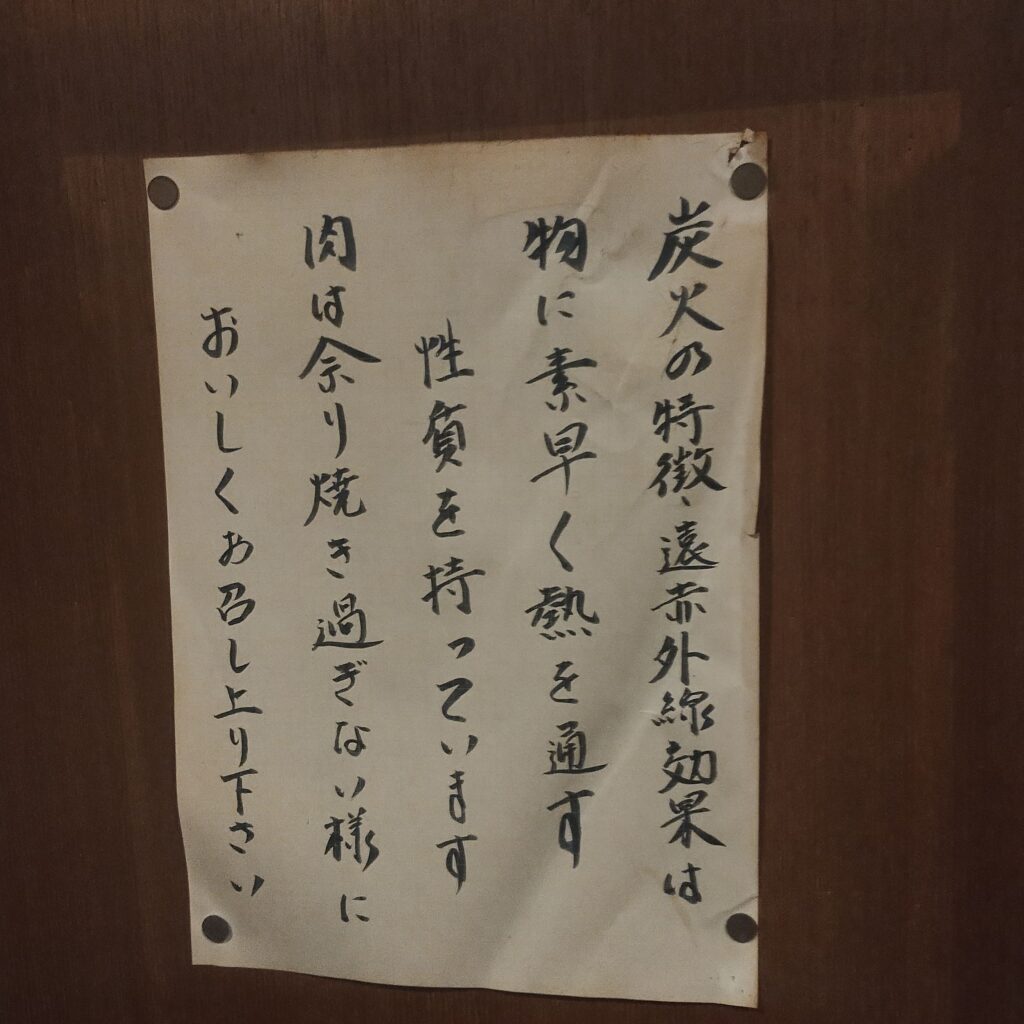 炭火の特徴、遠赤外線効果は
物に素早く熱を通す
性質を持っています
肉は余り焼き過ぎない様に
おいしくお召し上り下さい